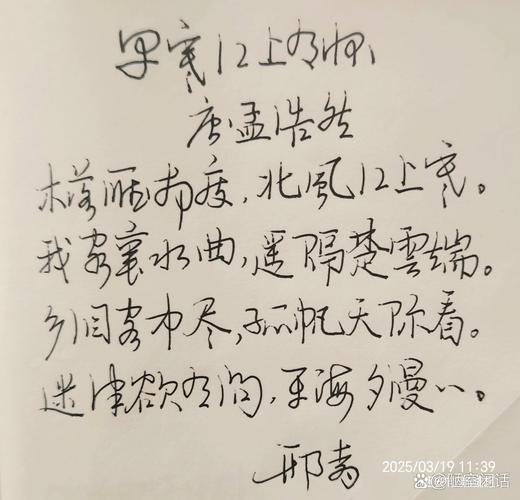 早寒江上有怀
唐孟浩然
木落雁南度,北風江上寒。
我家襄水曲,遥隔楚雲端。
乡泪客中尽,孤帆天际看。
迷津欲有问,平海夕漫々。
邢
2025/03/19 11:39
@陋室闲话